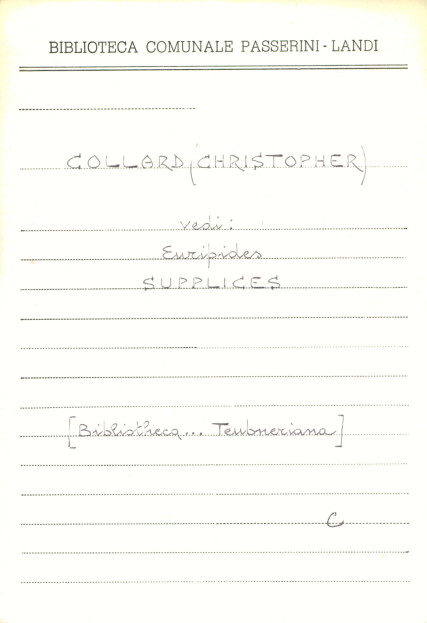 BIBLIOTECA COMUNALE PASSERINI - LANDI
COLLARD (CHRISTOPHER)
vedi:
Euripides
SUPPLICES
[Bibliotheca... Teubneriana]
C